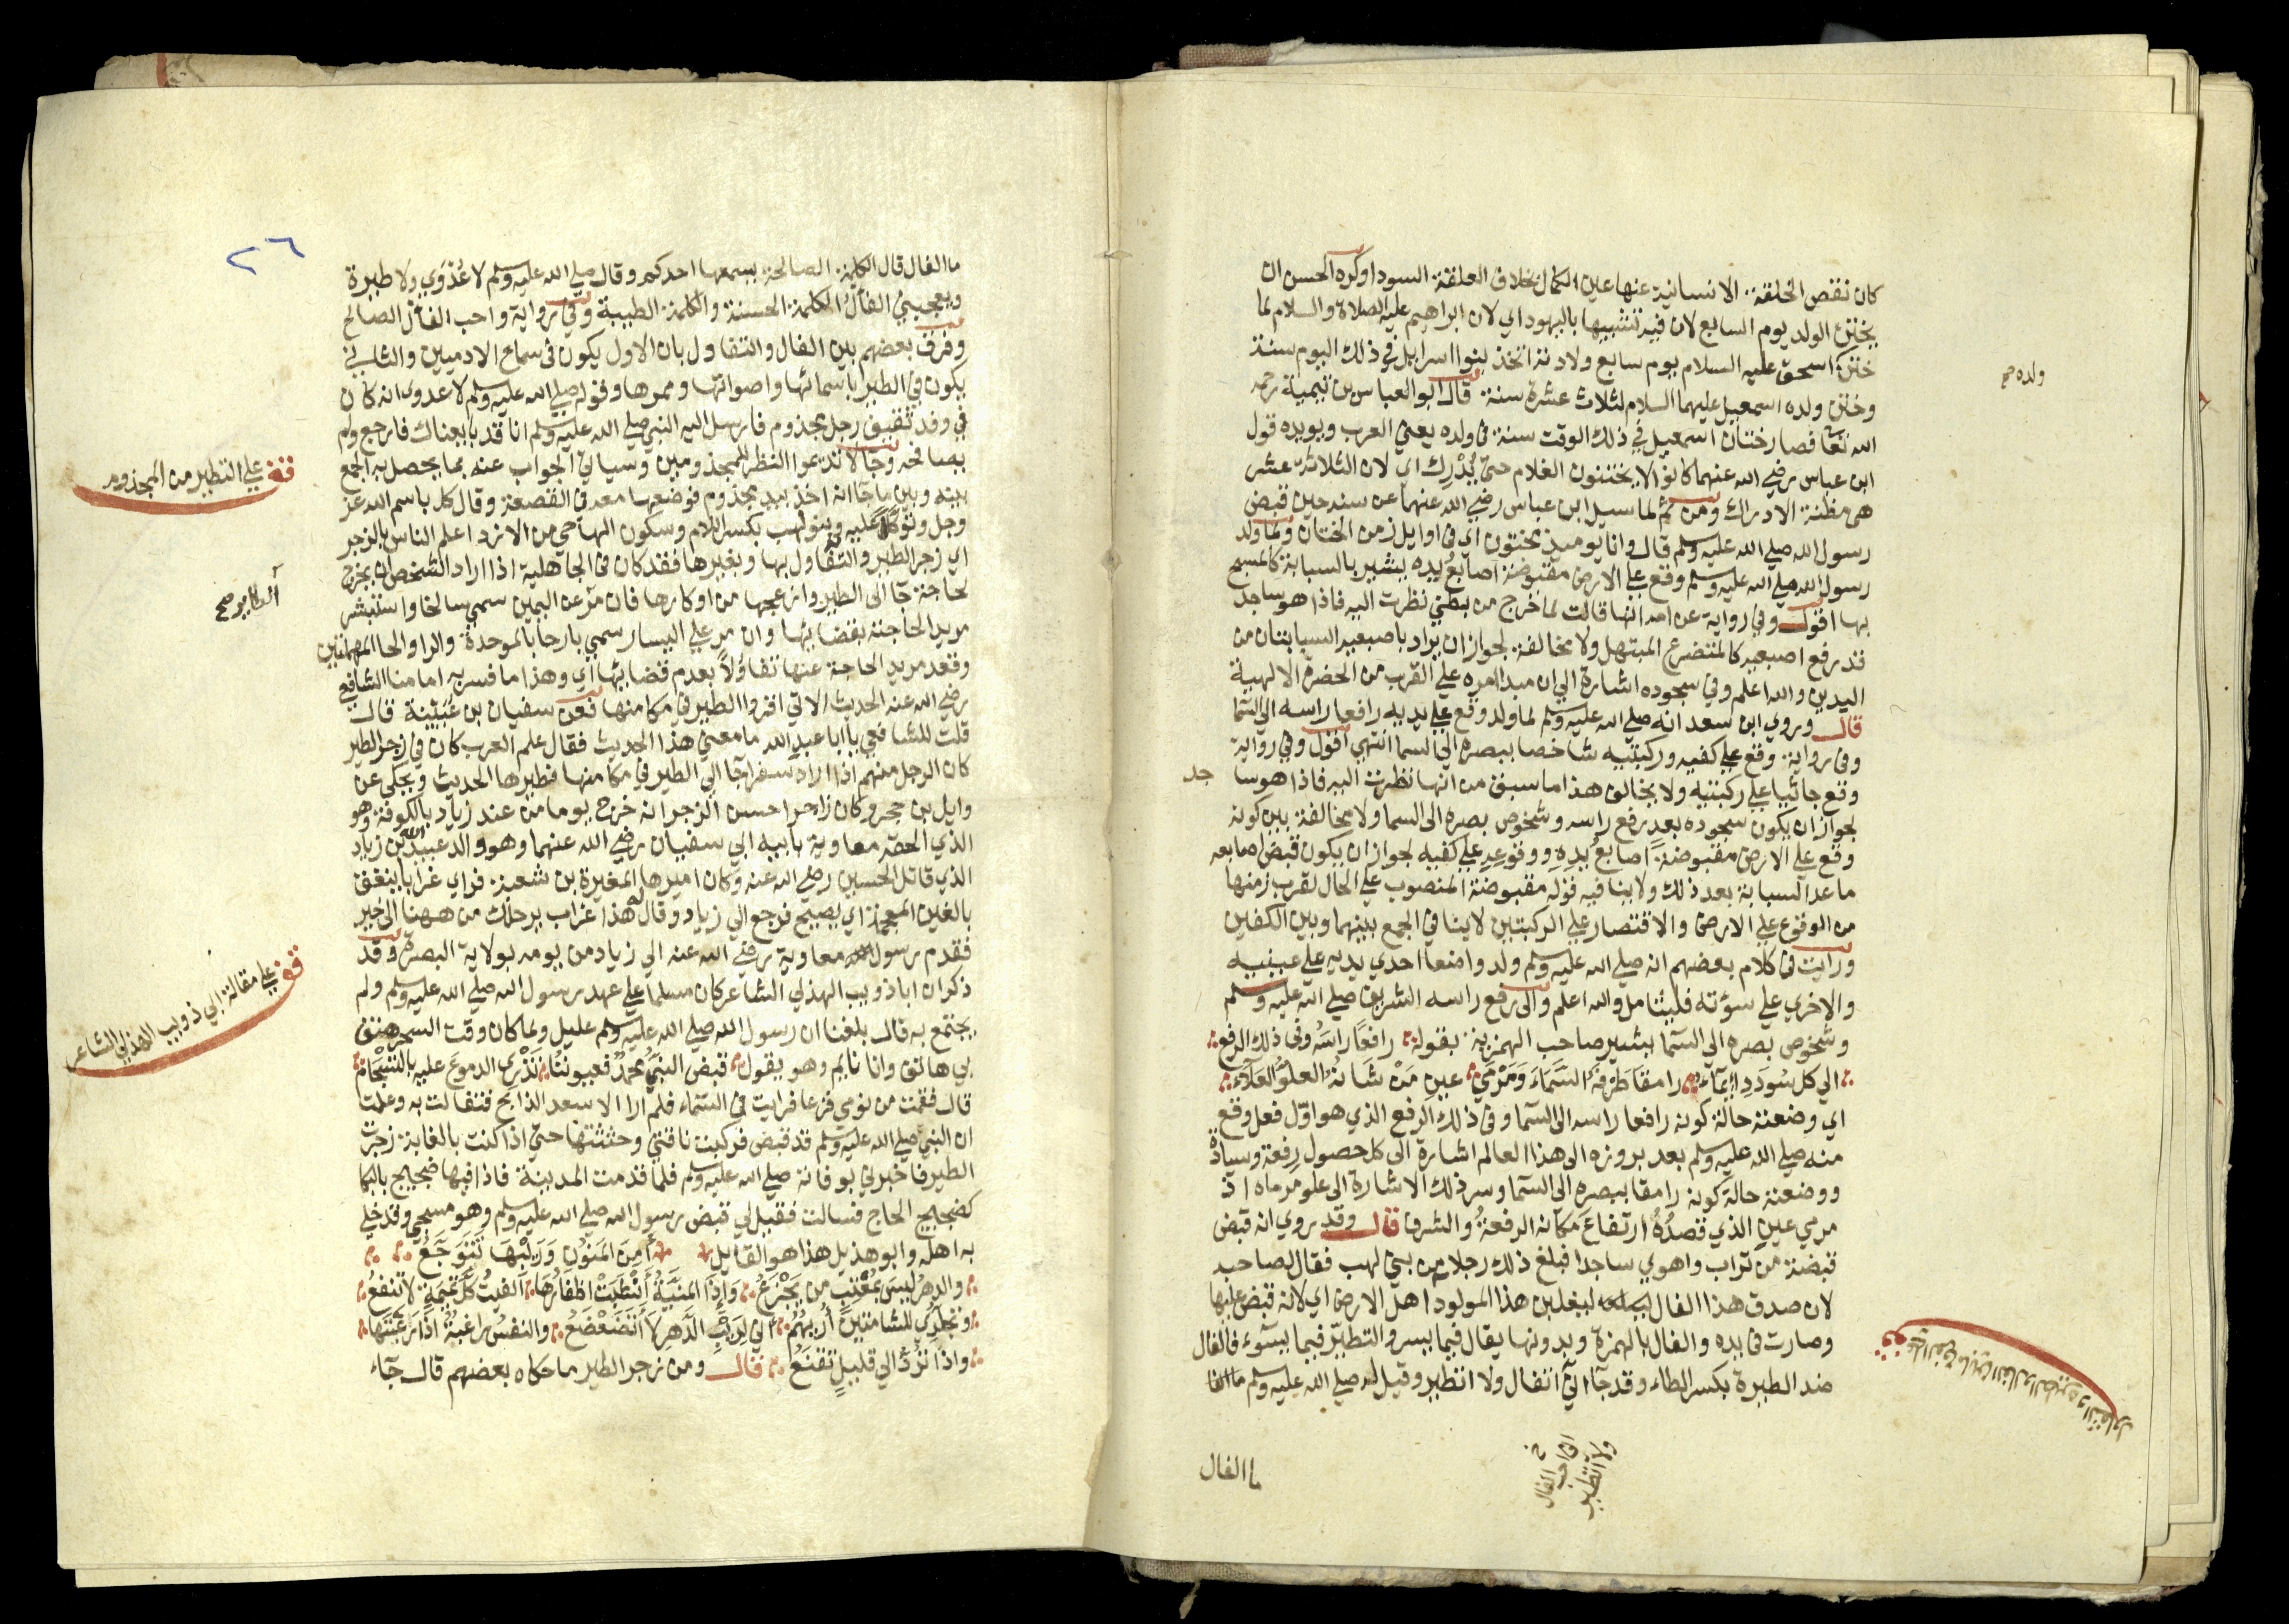 كان نقص الخلقة الانسانية عنها عين الكمال بخلاف العلقة السودا وكره الحسن ان
يختتن الولد يوم السابع لان فيه تشبيها باليهود اي لان ابراهيم عليه الصلاة والسلام لما
ختن اسحق عليه السلام يوم سابع ولادته اتخذ بنوا اسرايل في ذلك اليوم سنة
وختن ولده اسمعيل عليهما السلام لثلاث عشرة سنة قال ابو العباس بن تيمية رحمه
الله تعا فصار ختان اسمعيل في ذلك الوقت سنة في ولده يعني العرب ويويده قول
ابن عباس رضي الله عنهما كانوا لا يختنون الغلام حتى يُدْرِك اي لان الثلاثة عشر
هي مظنة الادراك ومن ثم لما سيل ابن عباس رضي الله عنهما عن سنه حين قبض
رسول الله صلي الله عليه وسلم قال وانا يوميذ مختون اي في اوايل زمن الختان ولما ولد
رسول الله صلي الله عليه وسلم وقع علي الارض مقبوضة اصابع يده يشير بالسبابة كالمسبح
بها اقول وفي رواية عن امه انها قالت لما خرج من بطني نظرت اليه فاذا هو ساجد
قد رفع اصبعيه كالمتضرع المبتهل ولا مخالفة لجواز ان يراد باصبعيه السبابتان من
اليدين والله اعلم وفي سجوده اشارة الي ان مبدا امره علي القرب من الحضرة الالهية
قال وروي ابن سعد انه صلي الله عليه وسلم لما ولد وقع علي يديه رافعا راسه الي السما
وفي رواية وقع علي كفيه وركبتيه شاخصا ببصره الي السما انتهي اقول وفي رواية
وقع جاثيا علي ركبتيه ولا يخالف هذا ما سبق من انها نظرت اليه فاذا هو سا جد
لجواز ان يكون سجوده بعد رفع راسه وشخوص بصره الى السما ولا مخالفة بين كونه
وقع علي الارض مقبوضة اصابع يده ووقوعه علي كفيه لجواز ان يكون قبض اصابعه
ما عدا السبابة بعد ذلك ولا ينافيه قوله مقبوضة المنصوب علي الحال لقرب زمنها
من الوقوع علي الارض والاقتصار علي الركبتين لا ينافي الجمع بينهما وبين الكفين
ورايت في كلام بعضهم انه صلي الله عليه وسلم ولد واضعا احدي يديه علي عينيه
والاخري علي سؤته فليتامل والله اعلم والي رفع راسه الشريف صلي الله عليه وسلم
وشخوص بصره الي السما يشير صاحب الهمزية بقوله رافعًا راسَهُ وفي ذلك الرفع
الي كل سُودَدِ إيمآءُ رامقا طَرْفهُ السَّمَاءَ وَمَرْمَي عينِ مَنْ شَانُهُ العلوُّ العَلآءُ
اي وضعته حالة كونه رافعا راسه الى السما وفي ذلك الرفع الذي هو اوّل فعل وقع
منه صلي الله عليه وسلم بعد بروزه الى هذا العالم اشارة الى كل حصول رفعة وسيادة
ووضعته حالة كونه رامقا ببصره الى السما وسر ذلك الاشارة الى علو مرماه اذ
مرمي عين الذي قصدُهُ ارتفاعُ مكانه الرفعةُ والشرف قال وقد روي انه قبض
قبضة من تراب واهوي ساجدا فبلغ ذلك رجلا من بني لهب فقال لصاحبه
لان صدق هذا الفال ليغلبن هذا المولود اهل الارض اي لانه قبض عليها
وصارت في يده والفال بالهمزة وبدونها يقال فيما يسر والتطيّر فيما يسوء فالفال
ضد الطيرة بكسر الطاء وقد جا اني اتفال ولا اتطير وقيل له صلي الله عليه وسلم
ما الفال
خ اني احب الفال
ولا اتطير
ولده صح
قف علي الفرق ما بين الفال والطيره والتفاول
٢٦
ما الفال قال الكلمة الصالحة يسمعها احدكم وقال صلي الله عليه وسلم لا عَدْوَي ولا طيرة
ويعجبنى الفأل الكلمة الحسنة والكلمة الطيبة وفي رواية واحب الفأل الصالح
وفرق بعضهم بين الفال والتفاول بان الاول يكون في سماع الادميين والثاني
يكون في الطير باسمائها واصواتها وممرها وقوله صلي الله عليه وسلم لا عدوى انه كان
في وفد ثقيف رجل مجذوم فارسل اليه النبي صلي الله عليه وسلم انا قد بايعناك فارجع ولم
يصافحه وجا لا تديموا النظر للمجذومين وسياتي الجواب عنه بما يحصل به الجمع
بينه وبين ما جا انه اخذ بيد مجذوم فوضعها معه في القصعة وقال كل باسم الله عز
وجل وتوكلا عليه وبنو لهب بكسر اللام وسكون الها حي من الازد اعلم الناس بالزجر
اي زجر الطير والتفاول بها وبغيرها فقد كان في الجاهلية اذا اراد الشخص ان يخرج
لحاجة جا الى الطير وازعجها من اوكارها فان مرّ عن اليمين سمي سانحا واستبشر
مريد الحاجة بقضايها وان مر علي اليسار سمي بارحا بالموحدة والرا والحا المهملتين
وقعد مريد الحاجة عنها تفاؤلا بعدم قضايها اي وهذا ما فسر به امامنا الشافعي
رضي الله عنه الحديث الاتي اقروا الطير في مكامنها فعن سفيان بن عُيَيْنِة قال
قلت للشافعي يا ابا عبد الله ما معني هذا الحديث فقال علم العرب كان في زجر الطير
كان الرجل منهم اذا اراد سفرا جا الى الطير في مكامنها فطيرها الحديث ويحكى عن
وايل بن حجر وكان زاجرا حسن الزجر انه خرج يوما من عند زياد بالكوفة وهو
الذي الحقه معاوية بابيه ابي سفيان رضي الله عنهما وهو والد عبيد الله بن زياد
الذي قاتل الحسين رضي الله عنه وكان اميرها المغيرة بن شعبة فراي غرابا ينغق
بالغين المعجمة اي يصيح فرجع الي زياد وقال له هذا غراب يرحلك من ههنا الى خير
فقدم رسول معاوية رضي الله عنه الي زياد من يومه بولاية البصرة وقد
ذكر ان ابا ذويب الهذلي الشاعر كان مسلما علي عهد رسول الله صلي الله عليه وسلم ولم
يجتمع به قال بلغنا ان رسول الله صلي الله عليه وسلم عليل ولما كان وقت السحر هتف
بي هاتف وانا نايم وهو يقول قبض النبيُّ محمدٌ فعيونُنا تُذْري الدموعَ عليه بالتَّسْجَام
قال فقمت من نومي فزعا فرايت في السَّماء فلم ارا الا سعد الذابح فتفالت به وعلمت
ان النبي صلي الله عليه وسلم قد قبض فركبت ناقتي وحثثتها حتى اذا كنت بالغابة زجرت
الطير فاخبرني بوفاته صلي الله عليه وسلم فلما قدمت المدينة فاذا فيها ضجيج بالبكا
كضجيج الحاج فسالت فقيل لي قبض رسول الله صلي الله عليه وسلم وهو مسجي وقد خلي
به اهله وابو هذيل هذا هو القايل أَمِنَ المَنُوْن وَرَيْبَهَا تَتَوَجَّعُ
والدهرُ ليسَ بمُعْتِبٍ من يَجْزَعُ وَاِذَا المَنيَّةُ أَنْشَبَتْ اظفَارُهَا الفيْتَ كلَّ تميمَةٍ لا تنفعُ
وتجلدي للشامتينَ أُريْهُمُ أني لِرَيْبِ الدَّهرِ لا أتضَعْضَعُ والنفسُ راغبةٌ اذا رَغَّبْتَها
واذا تُرَدُّ الي قليلٍ تقنَعُ قال ومن زجر الطير ما حكاه بعضهم قال جآء
قف علي التطير من المجذوم
الطاير صح
قف علي مقالة ابي ذويب الهذلي الشاعر